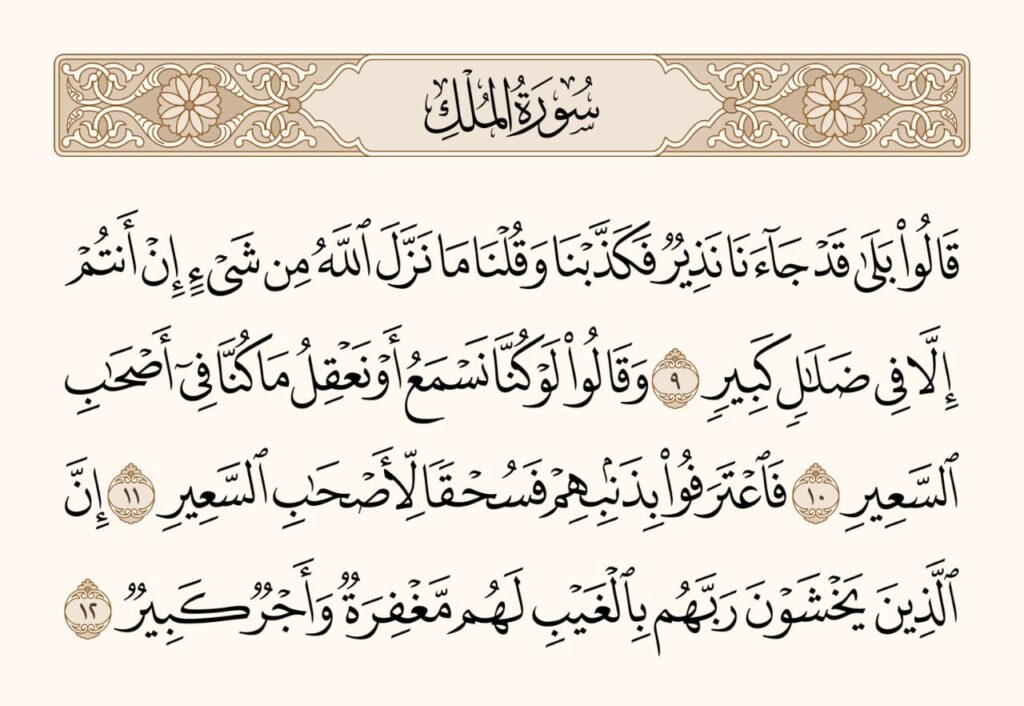 سُورَةُ الْمُلْكِ
قَالُوا۟ بَلَىٰ قَدْ جَآءَنَا نَذِيرٌ فَكَذَّبْنَا وَقُلْنَا مَا نَزَّلَ ٱللَّهُ مِن شَىْءٍ إِنْ أَنتُمْ
إِلَّا فِى ضَلَـٰلٍ كَبِيرٍ ٩ وَقَالُوا۟ لَوْ كُنَّا نَسْمَعُ أَوْ نَعْقِلُ مَا كُنَّا فِىٓ أَصْحَـٰبِ
ٱلسَّعِيرِ ١٠ فَٱعْتَرَفُوا۟ بِذَنۢبِهِمْ فَسُحْقًا لِّأَصْحَـٰبِ ٱلسَّعِيرِ ١١ إِنَّ
ٱلَّذِينَ يَخْشَوْنَ رَبَّهُم بِٱلْغَيْبِ لَهُم مَّغْفِرَةٌ وَأَجْرٌ كَبِيرٌ ١٢